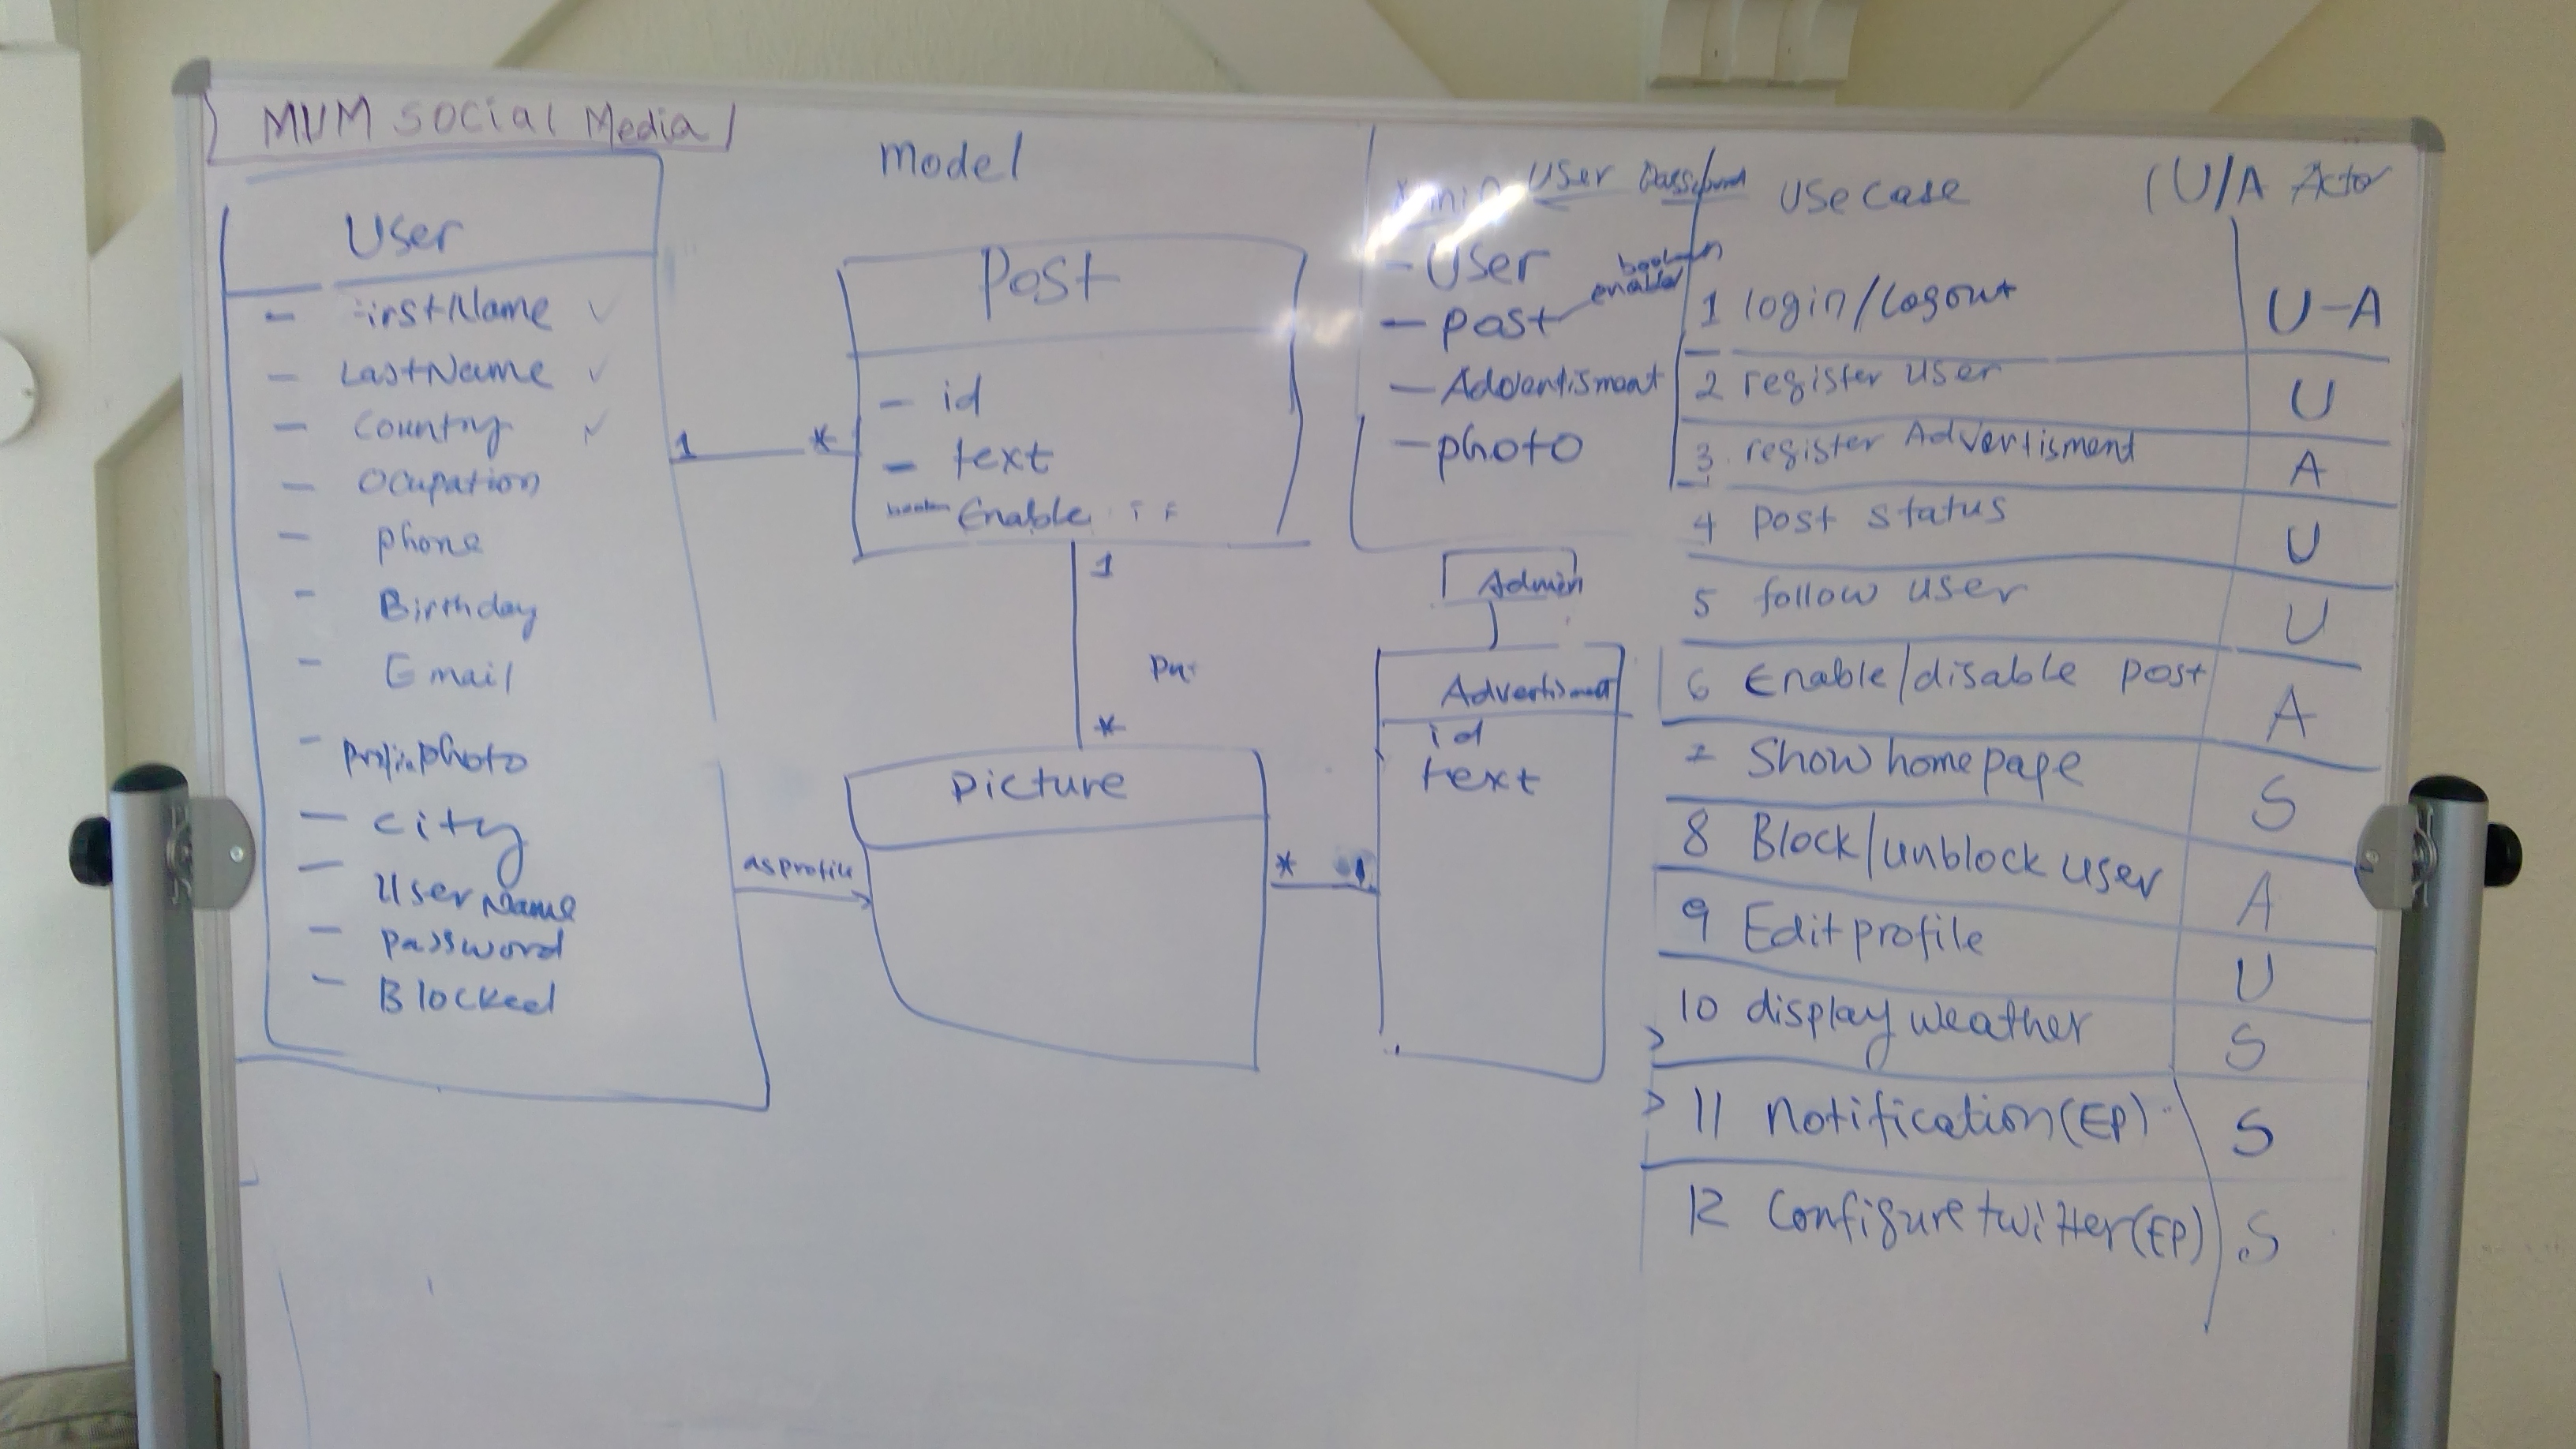 MUM social Media
Model
User
- FirstName ✓
- LastName ✓
- Country ✓
- Ocupation
- phone
- Birthday
- Email
- photo
- city
- UserName
- password
- Blocked
1 *
Post
- id
- text
boolean Enable
1
*
Picture
as profile
* 1
User
- User
- post boolean enable
- Advertisment
- photo
Admin
Advertisment
id
text
Use case (U/A Actor
1 login/Logout U-A
2 register user U
3 register Advertisment A
4 post status U
5 follow user U
6 Enable/disable post A
7 Show home page S
8 Block/unblock user A
9 Edit profile U
10 display weather S
> 11 Notification(EP) S
12 Configure twitter(EP) S